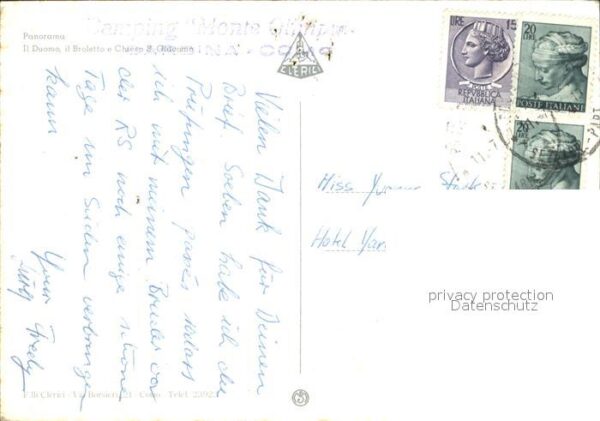 Camping "Monte Olimpino"
Panorama
Il Duomo, il Broletto e Chiesa S. Giacomo
CLERICI
LIRE 15
POSTE
REPVBBLICA
ITALIANA
20
LIRE
POSTE ITALIANE
20
LIRE
Vielen Dank für Deinen
Brief. Soeben habe ich die
Prüfungen passés sodass
ich mit meinem Bruder vor
der RS noch einige schöne
Tage im Süden verbringen
kann
Your
Jürg
Miss
Hotel
privacy protection
Datenschutz
F.lli Clerici - Via Borsieri, 21 - Como - Telef. 23923